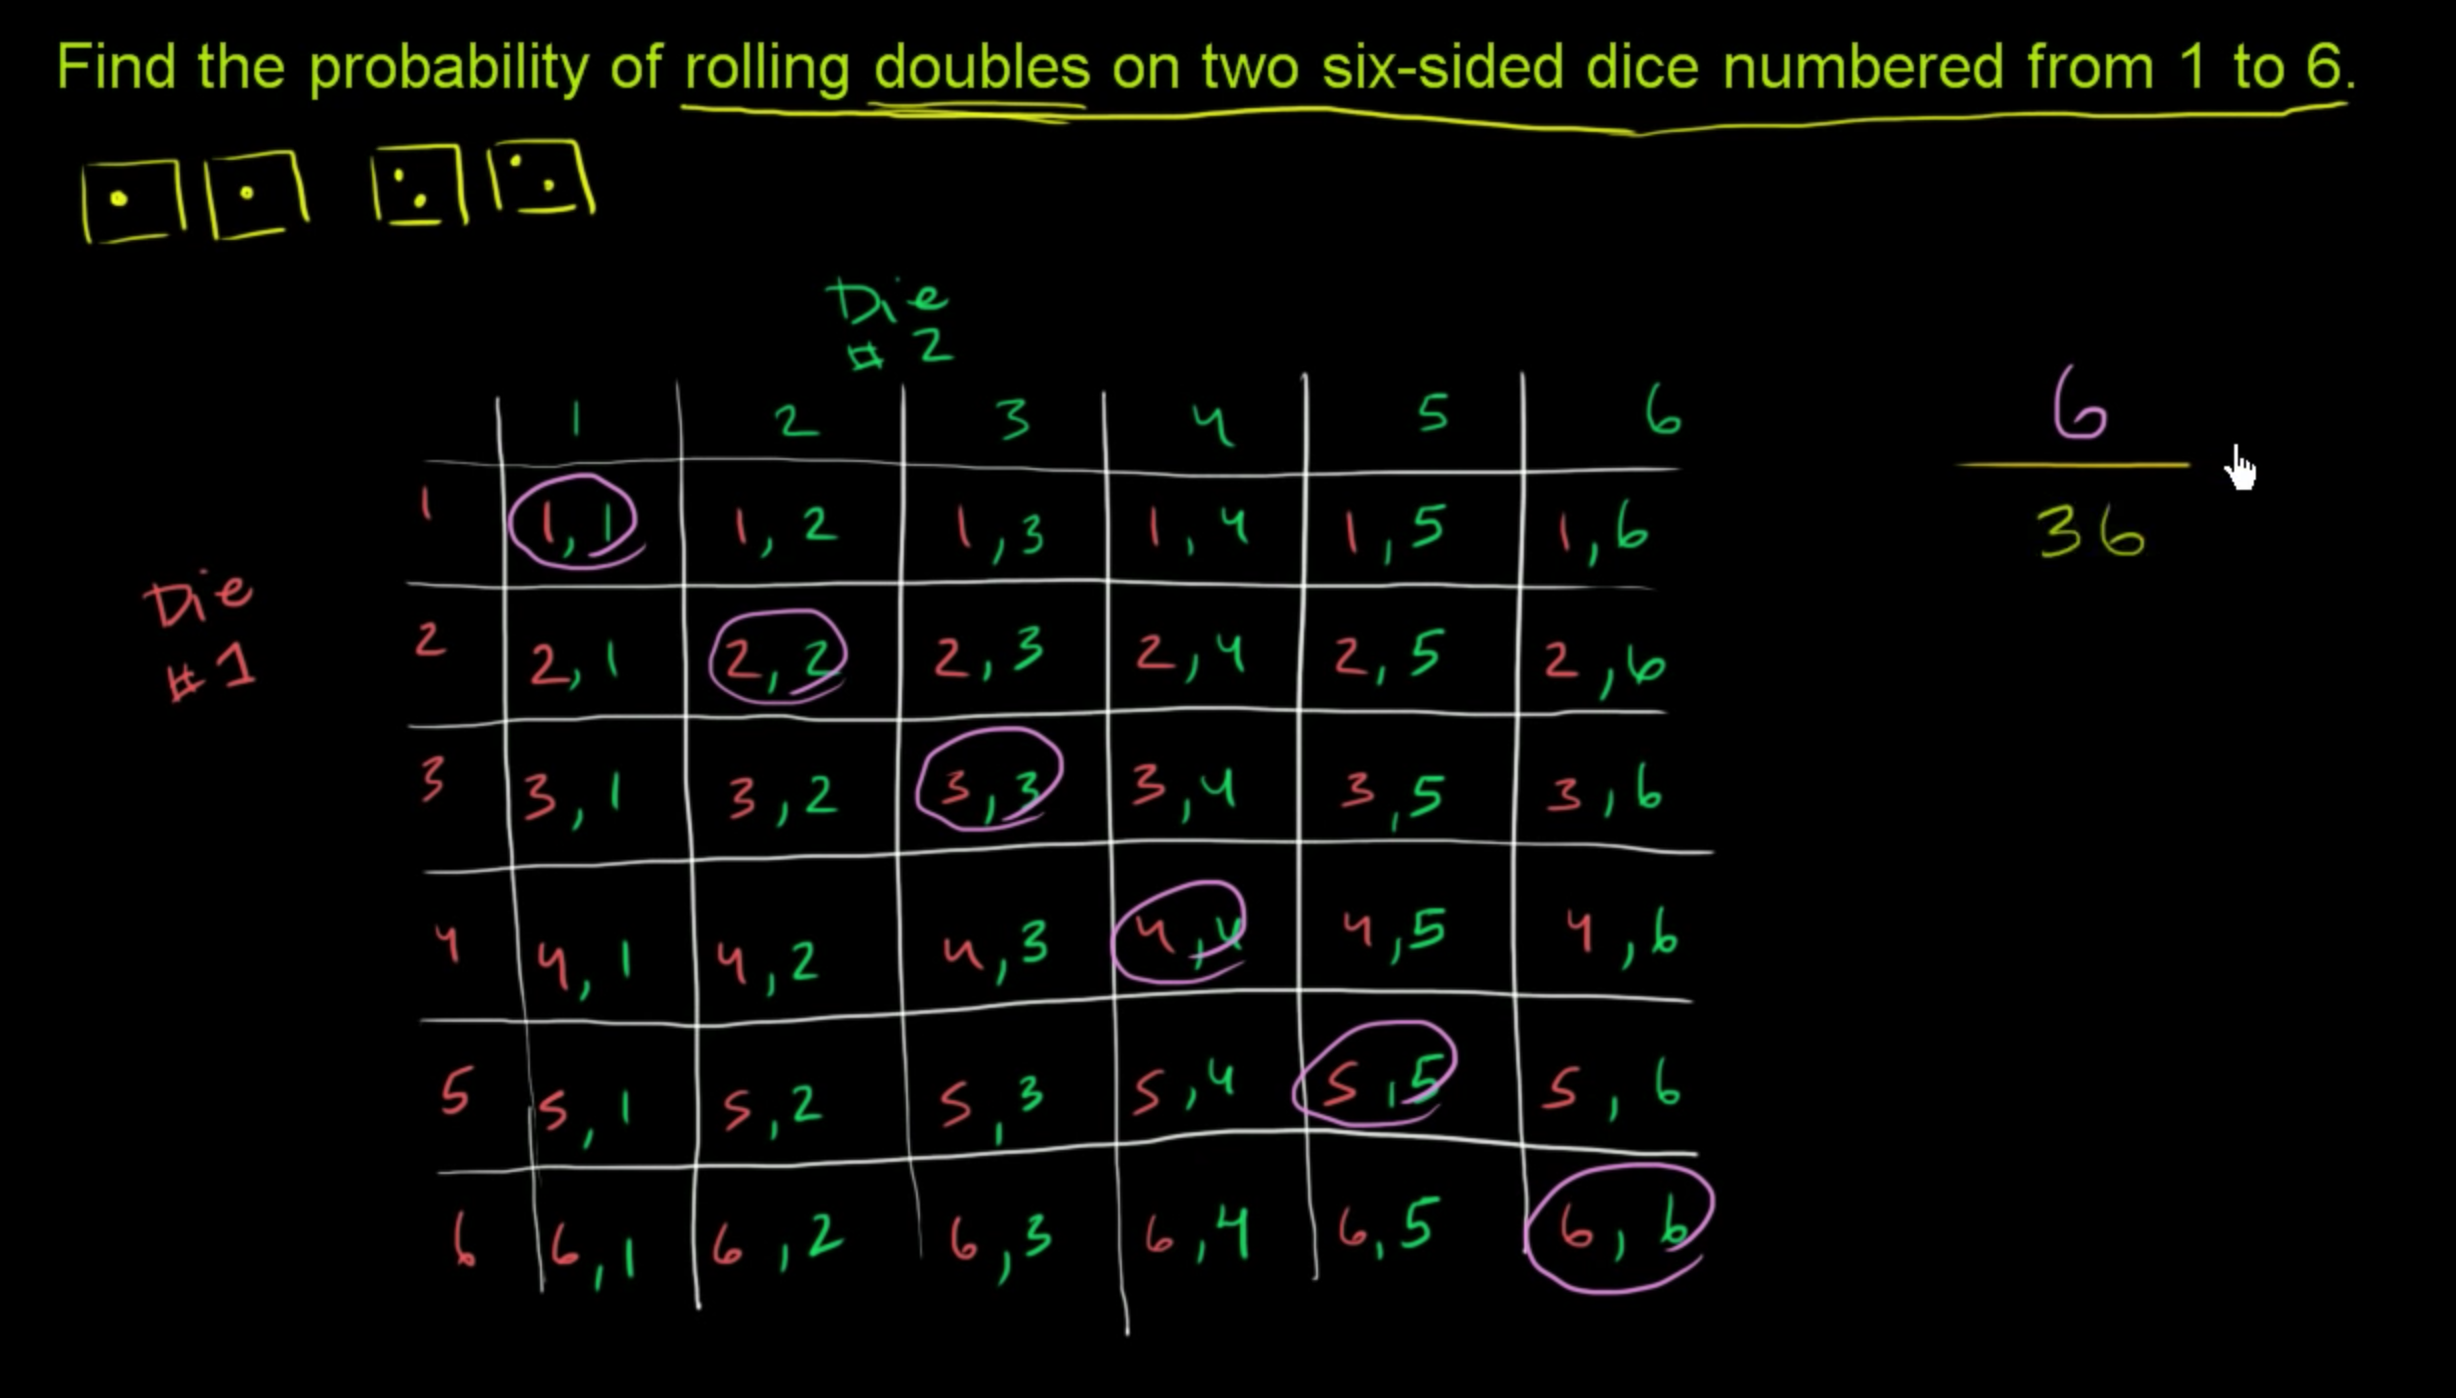 Find the probability of rolling doubles on two six-sided dice numbered from 1 to 6.
Die
# 2
1 2 3 4 5 6
1 1,1 1,2 1,3 1,4 1,5 1,6
Die
#1
2 2,1 2,2 2,3 2,4 2,5 2,6
3 3,1 3,2 3,3 3,4 3,5 3,6
4 4,1 4,2 4,3 4,4 4,5 4,6
5 5,1 5,2 5,3 5,4 5,5 5,6
6 6,1 6,2 6,3 6,4 6,5 6,6
6
36